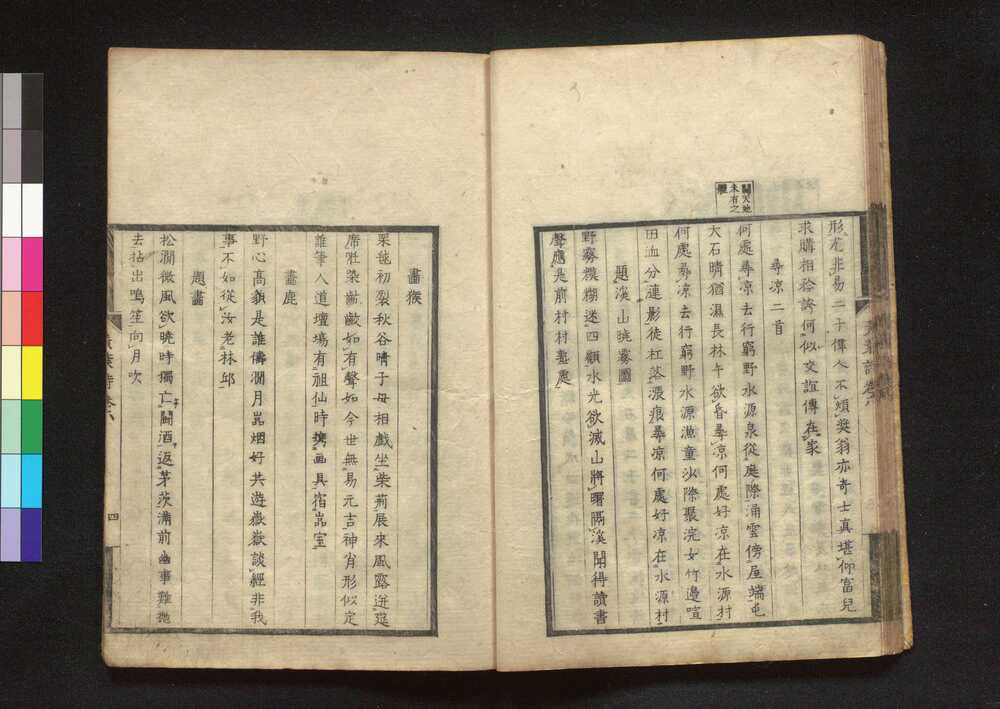 黃葉詩卷
形非易二十傳人不煩奬翁亦奇士真堪仰富兒
求購相矜誇何似交誼傳在家
尋凉二首
天地
未有之
何處尋凉去行窮野水源泉從庭際涌雲傍屋端屯
大石晴猶濕長林午欲昏尋凉何處好凉在水源村
何處尋凉去行窮野水源漁童沙際聚浣女竹邊喧
田血分蓮影徒杠落漲痕尋凉何處好凉在水源村
題溪山曉霧圖
野霧糢糊迷四顧水光欲滅山將曙隔溪聞得讀書
聲應是前村村塾處
畫猴
栗毬初裂秋谷晴子母相戲坐柴荊展來風露迸筵
席染如有聲如今世無易元吉神肖形似定
誰筆人道壇塲有祖仙時携画具宿嵓室
畫鹿
野心高貌是誰儔澗月嵓烟好共遊嶽嶽談經非我
事不如從汝老林邱
題畫
松澗微風欲曉時獨亡鬪酒返茅茨滿前幽事難抛
去拈出鳴笙向月吹
黃葉詩卷
四